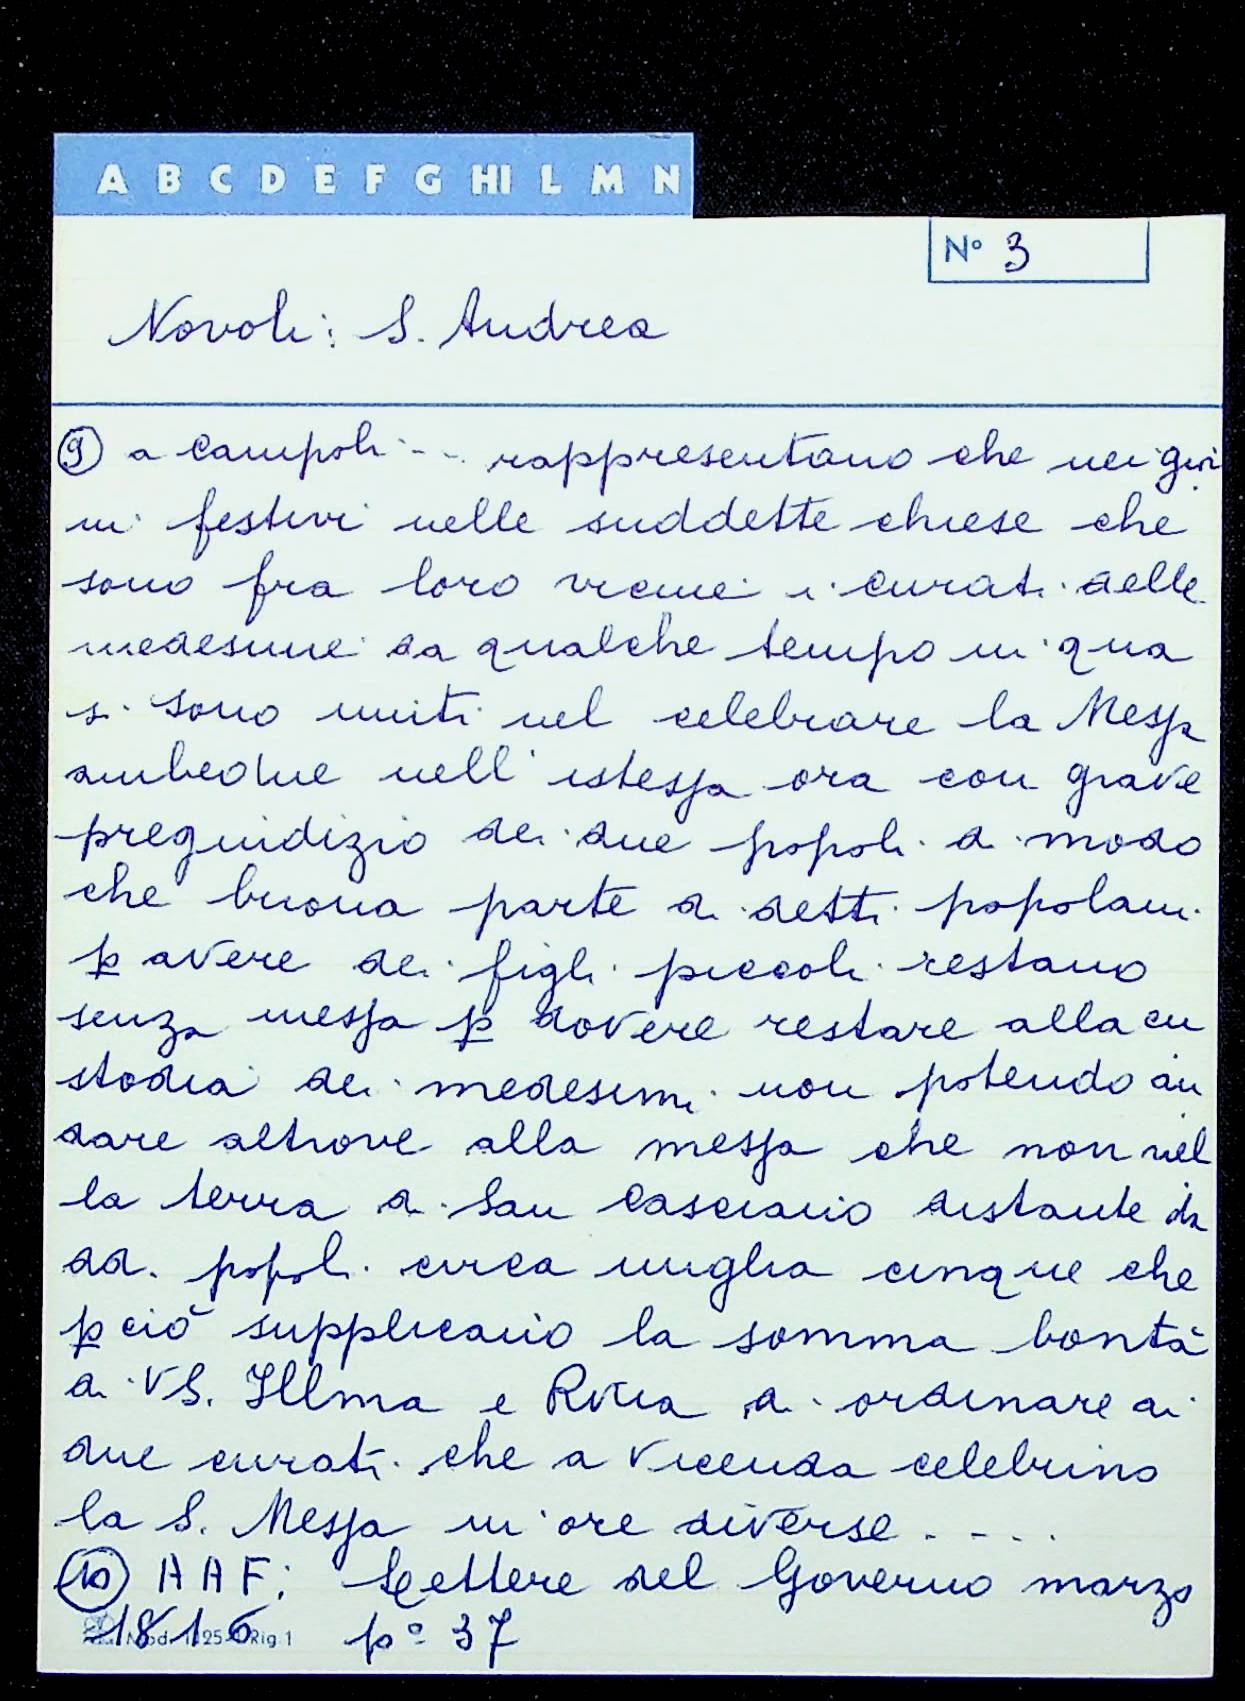 A B C D E F G HI L M N
N° 3
Novoli: S. Andrea
9 a Campoli - - rappresentano che nei gior
ni festivi nelle suddette chiese che
sono fra loro vicine i curati delle
medesime da qualche tempo in qua
si sono uniti nel celebrare la Messa
ambedue nell'istessa ora con grave
preguidizio dei due popoli di modo
che buona parte di detti popolani
p avere dei figli piccoli restano
senza messa p dovere restare alla cu
stodia dei medesimi non potendo an
dare altrove alla messa che non nel
la terra di San Casciano distante da
dd. popoli circa miglia cinque che
p ciò supplicano la somma bontà
di VS. Illma e Rvma di ordinare ai
due curati che a vicenda celebrino
la S. Messa in ore diverse - - - .
10 AAF: Lettere del Governo marzo
1816 p° 37
Mod. 125 Rig. 1